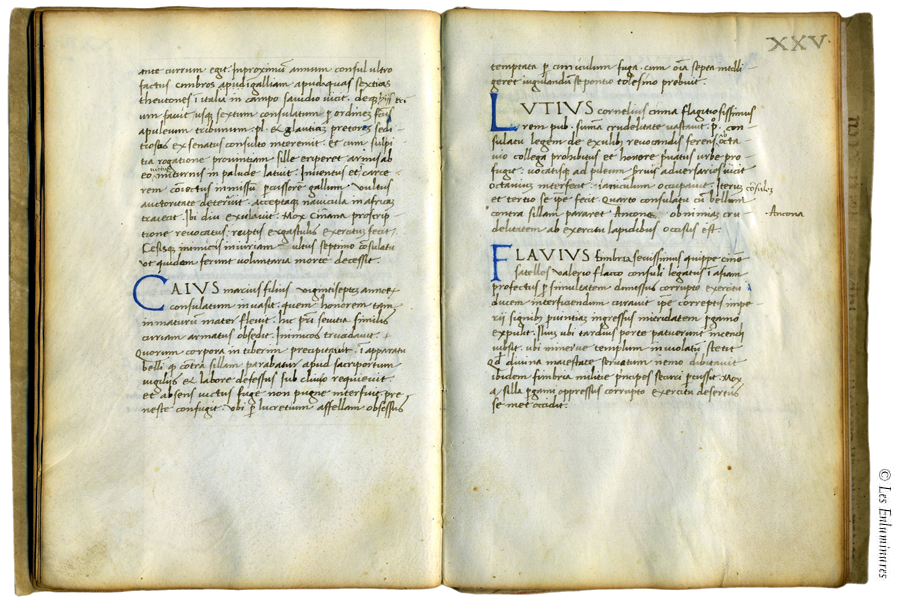 ante currum egit. In proximum annum consul ultro
factus cimbros apud galliam apud aquas sextias
theutones i italia in campo saudio uicit. deq;
um fauit usq; sextum consulatum
apuleum tribunum. pl. & glautiam pretores sedi
ciosos ex senatus consulto interemit. et cum sulpi
tia rogatione prouintiam sille eriperet armis ab
eo minturnis in palude latuit. Inuentus et carce
rem coiectus inmissum percussore gallum. uultus
auctoritate deteruit. acceptaq; nauicula in africam
traiecit. Ibi diu exulauit. Mox cinana proscrip
tione reuocatus. ruptis ergastulis exercitum fecit.
Cesisq; inimicis iniuriam ultus septimo cōsulatu
ut quidam ferunt uoluntaria morte decessit.
CAIUS marcius filius uiginti septem
consulatum inuasit. quem honorem tam
immaturum mater fleuit. hic pri seuitia similis
curiam armatus obsedit. Inimicos trucidauit.
Quorum corpora in tiberim precipitauit. i apparatu
belli q contra sillam parabatur apud sacriportum
uigiliis et labore defessus sub cliuo requieuit.
et absens uictus fuge non pugne interfuit. pre
neste confugit. ubi p lucretium affellam obsessus
XXV.
temptata p cuniculum fuga. cum oīa septa intelli
geret iugulandum se pontio telesino prebuit.
LUTIUS cornelius cinna flagitiosissimus
rem pub. suma crudelitate uastauit. p. con
sulatu legem de exulib; reuocandis ferens. octa
uio collega prohibitus et honore priuatus urbe pro
fugit. uocatisq; ad pileum seruis aduersarios uicit
octauium interfecit. ianiculum occupauit. Iterum cōsules
et tertio se ipe fecit. Quarto consulatu cū bellum
contra sillam pararet Ancone. ob nimiam cru
delitatem ab exercitu lapidibus occisus est.
Ancona
FLAVIUS fimbria seuissimus quippe cinne
satelles Valerio flacco consuli legatus i asiam
profectus p simultatem dimissus corrupto exercitu
ducem interficiendum curauit ipe correptis impe
rii signis puintiam ingressus mitridatem pgamo
expulit. Ilium ubi tardius porte patuerant incendi
iussit. ubi minerue templum inuiolatum stetit
Qd diuina maiestate seruatum nemo dubitauit
ibidem fimbria militie principes securi pcussit. Mox
a silla pgami oppressus corrupto exercitu desertus
se met occidit.
© Les Enluminures